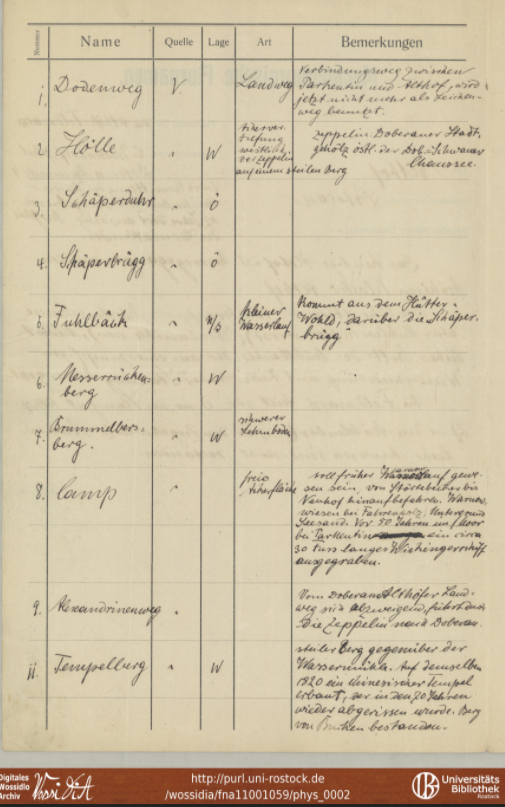 Nummer Name Quelle Lage Art Bemerkungen
1. Dodenweg V Landweg Verbindungsweg zwischen
Parkentin und Althof, wird
jetzt nicht mehr als Leichen-
weg benutzt.
2. Hölle " W
westlich
vor Zeppelin
auf einem steilen Berg
Zeppelin Doberaner Stadt,
gehölz östl. der Dob.-Schwaaner
Chaussee.
3. Schäperduhr " ö
4. Schäperbrügg " ö
5. Fuhlbäck " n/s kleiner
Wasserlauf
kommt aus dem Hütter-
Wohld, darüber die Schäper-
brügg"
6. Messerrücken-
berg " W
7. Brummelbers-
berg. " W schwerer
Lehmboden
8. Camp " freie
Ackerfläche
soll früher Warnowlauf gewe-
sen sein, von Störtebeker bis
Neuhof hinauf befahren. Warnow-
wiesen bei Fahrenholz, Untergrund
Seesand. Vor 50 Jahren im Moor
bei Parkentin ein circa
30 Fuss langes Wickingerschiff
ausgegraben.
9. Alexandrinenweg "
Vom Doberan Althöfer Land-
weg sich abzweigend, führt durch
die Zeppelin nach Doberan.
11. Tempelberg " W
steiler Berg gegenüber der
Wassermühle. Auf demselben
1820 ein chinesischer Tempel
erbaut, der in den 70 Jahren
wieder abgerissen wurde. Berg
von Buchen bestanden.
Digitales
Wossidlo
Archiv
WossiDiA
http://purl.uni-rostock.de
/wossidia/fna11001059/phys_0002
Universitäts
Bibliothek
Rostock